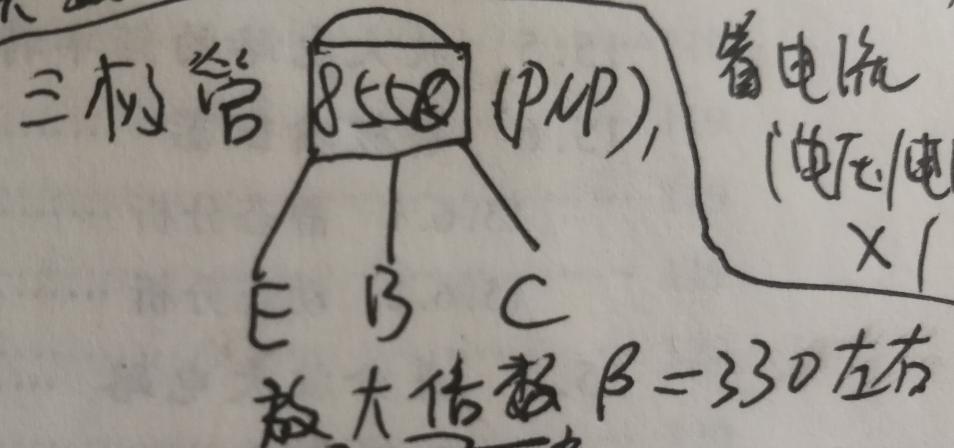 三极管 8550 (PNP),
E B C
放大倍数 β=330左右
蓄电流
(电压/电
×1